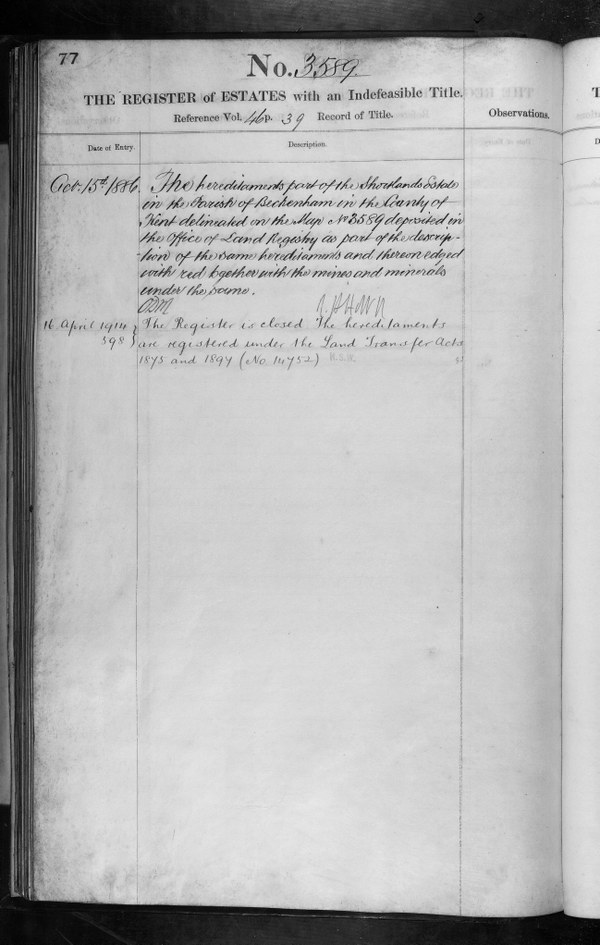 77
No. 3589
THE REGISTER of ESTATES with an Indefeasible Title.
Reference Vol. 46 p. 39 Record of Title.
Observations.
Date of Entry.
Description.
Oct. 15th 1886.
The hereditaments part of the Shortlands Estate
in the Parish of Beckenham in the County of
Kent delineated on the Map No 3589 deposited in
the Office of Land Registry as part of the descrip-
-tion of the same hereditaments and thereon edged
with red together with the mines and minerals
under the same.
16 April 1914
598
The Register is closed The hereditaments
are registered under the Land Transfer Acts
1875 and 1897 (No. 14752)